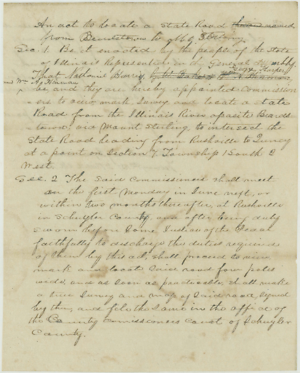 An act to locate a State Road
from Beardstown to
Sec. 1 Be it enacted by the people of the State
of Illinois represented in the General Assembly
That
be and they are hereby appointed commissioners
to view mark survey and locate a state
Road from the Illinois River oposite Beards
town, via Mount Sterling to intersect the
State Road leading from Rushville to Quincy
at a point on Section Township 1 South
West.
Sec. 2 The said Commissioners shall meet
on the first Monday in June next, or
within two months thereafter at Rushville
in Schuyler County and after being duly
sworn before some Justice of the Peace
faithfully to discharge the duties required
of them by this act, shall proceed to view
mark and locate said road four poles
wide, and as soon as practicable shall make
a true survey and map of said road, signed
by them and file the same in the office of
the County commissioners Court of Schuyler
County.